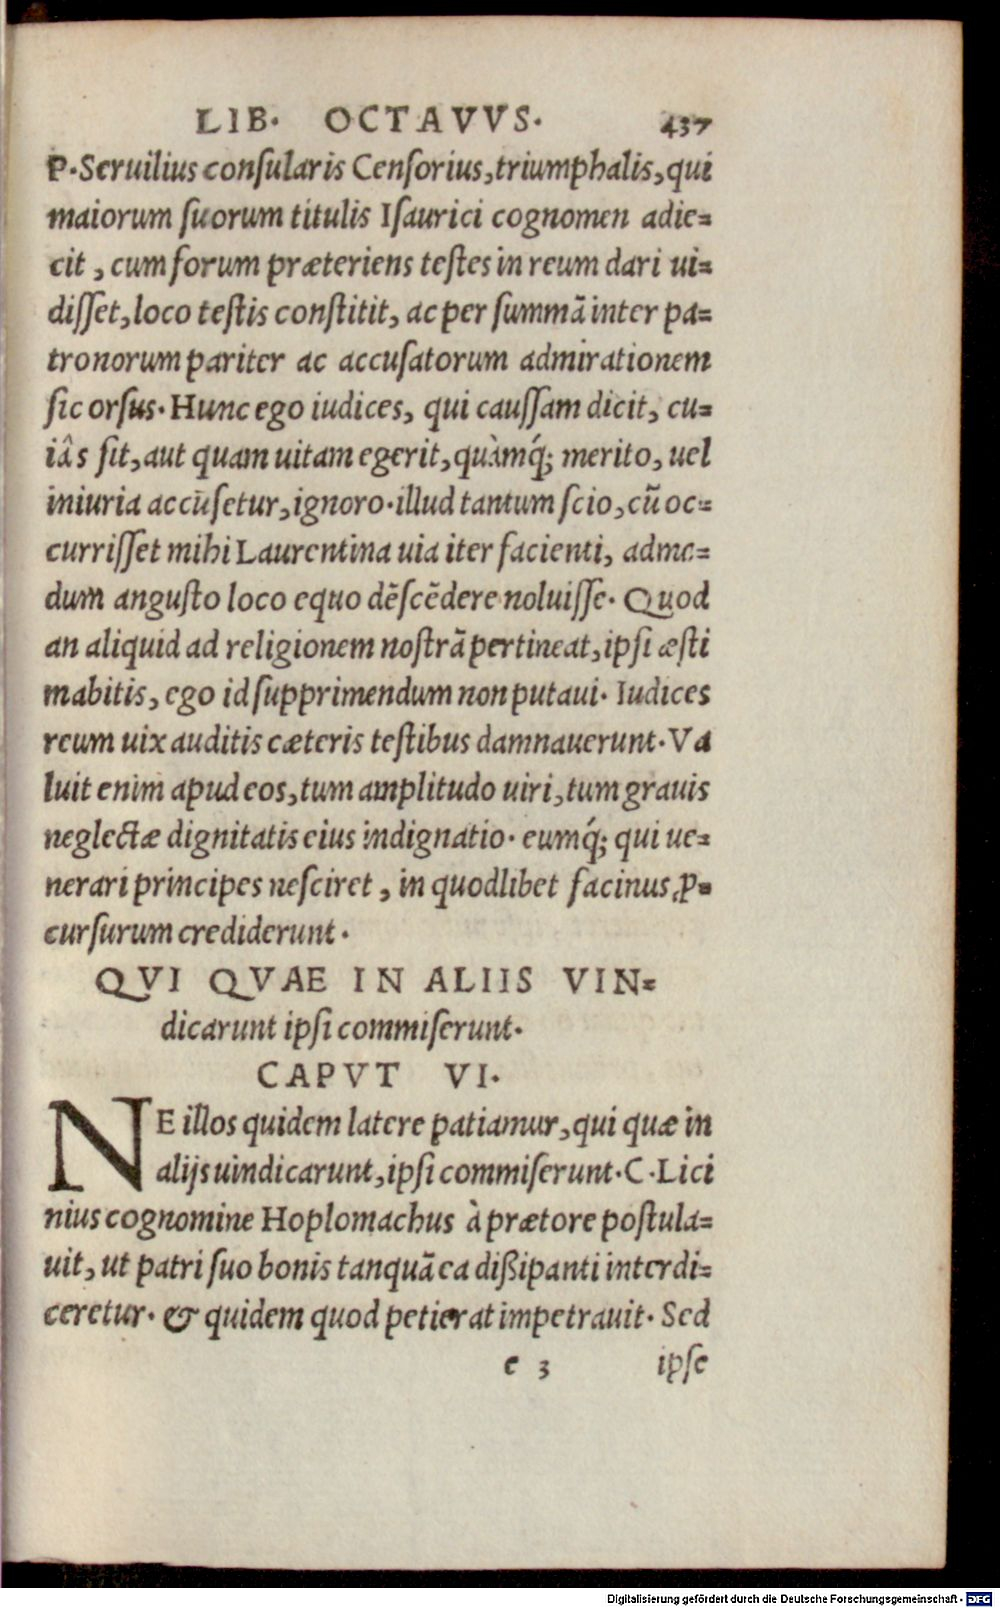 LIB. OCTAVVS. 437
P. Seruilius conſularis Cenſorius, triumphalis, qui
maiorum ſuorum titulis Iſaurici cognomen adie=
cit, cum forum præteriens teſtes in reum dari ui=
diſſet, loco teſtis conſtitit, ac per ſummā inter pa=
tronorum pariter ac accuſatorum admirationem
ſic orſus. Hunc ego iudices, qui cauſſam dicit, cu=
iâs ſit, aut quam uitam egerit, quàmq́; merito, uel
iniuria accuſetur, ignoro. illud tantum ſcio, cū oc=
curriſſet mihi Laurentina uia iter facienti, admo=
dum anguſto loco equo dēſcēdere noluiſſe. Quod
an aliquid ad religionem noſtrā pertineat, ipſi æſti
mabitis, ego id ſupprimendum non putaui. Iudices
reum uix auditis cæteris teſtibus damnauerunt. Va
luit enim apud eos, tum amplitudo uiri, tum grauis
neglectæ dignitatis eius indignatio. eumq́; qui ue=
nerari principes neſciret, in quodlibet facinus ꝓ=
curſurum crediderunt.
QVI QVAE IN ALIIS VIN=
dicarunt ipſi commiſerunt.
CAPVT VI.
NE illos quidem latere patiamur, qui quæ in
alijs uindicarunt, ipſi commiſerunt. C. Lici
nius cognomine Hoplomachus à prætore poſtula=
uit, ut patri ſuo bonis tanquā ea dißipanti interdi=
ceretur. & quidem quod petierat impetrauit. Sed
e 3 ipſe
Digitalisierung gefördert durch die Deutsche Forschungsgemeinschaft - DFG